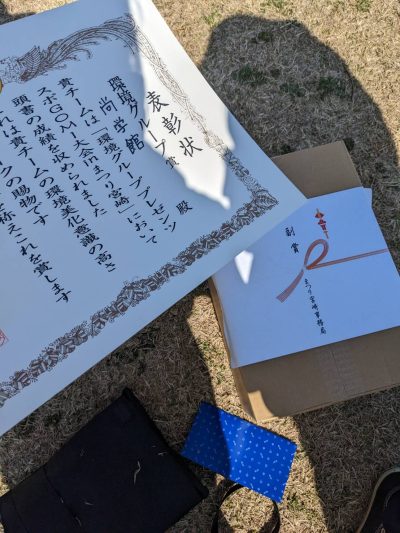 表彰状
環境グループ賞
尚学館 殿
貴チームは「環境グループプレゼン
スポGOMI大会inまつり宮崎」において
頭書の成績を収められました
れは貴チームの環境美化意識の高さ
ークの賜物です
称えこれを賞します
副賞
まつり宮崎事務局